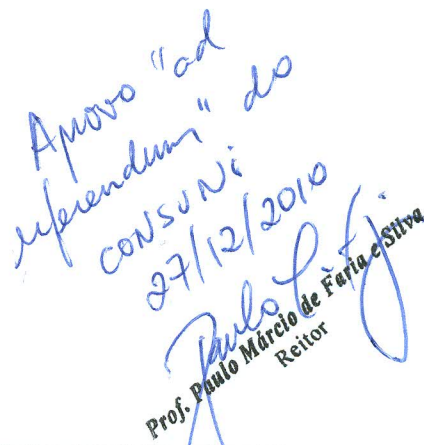 Aprovo "ad
referendum" do
CONSUNi
27/12/2010
Paulo
Prof. Paulo Márcio de Faria e Silva
Reitor